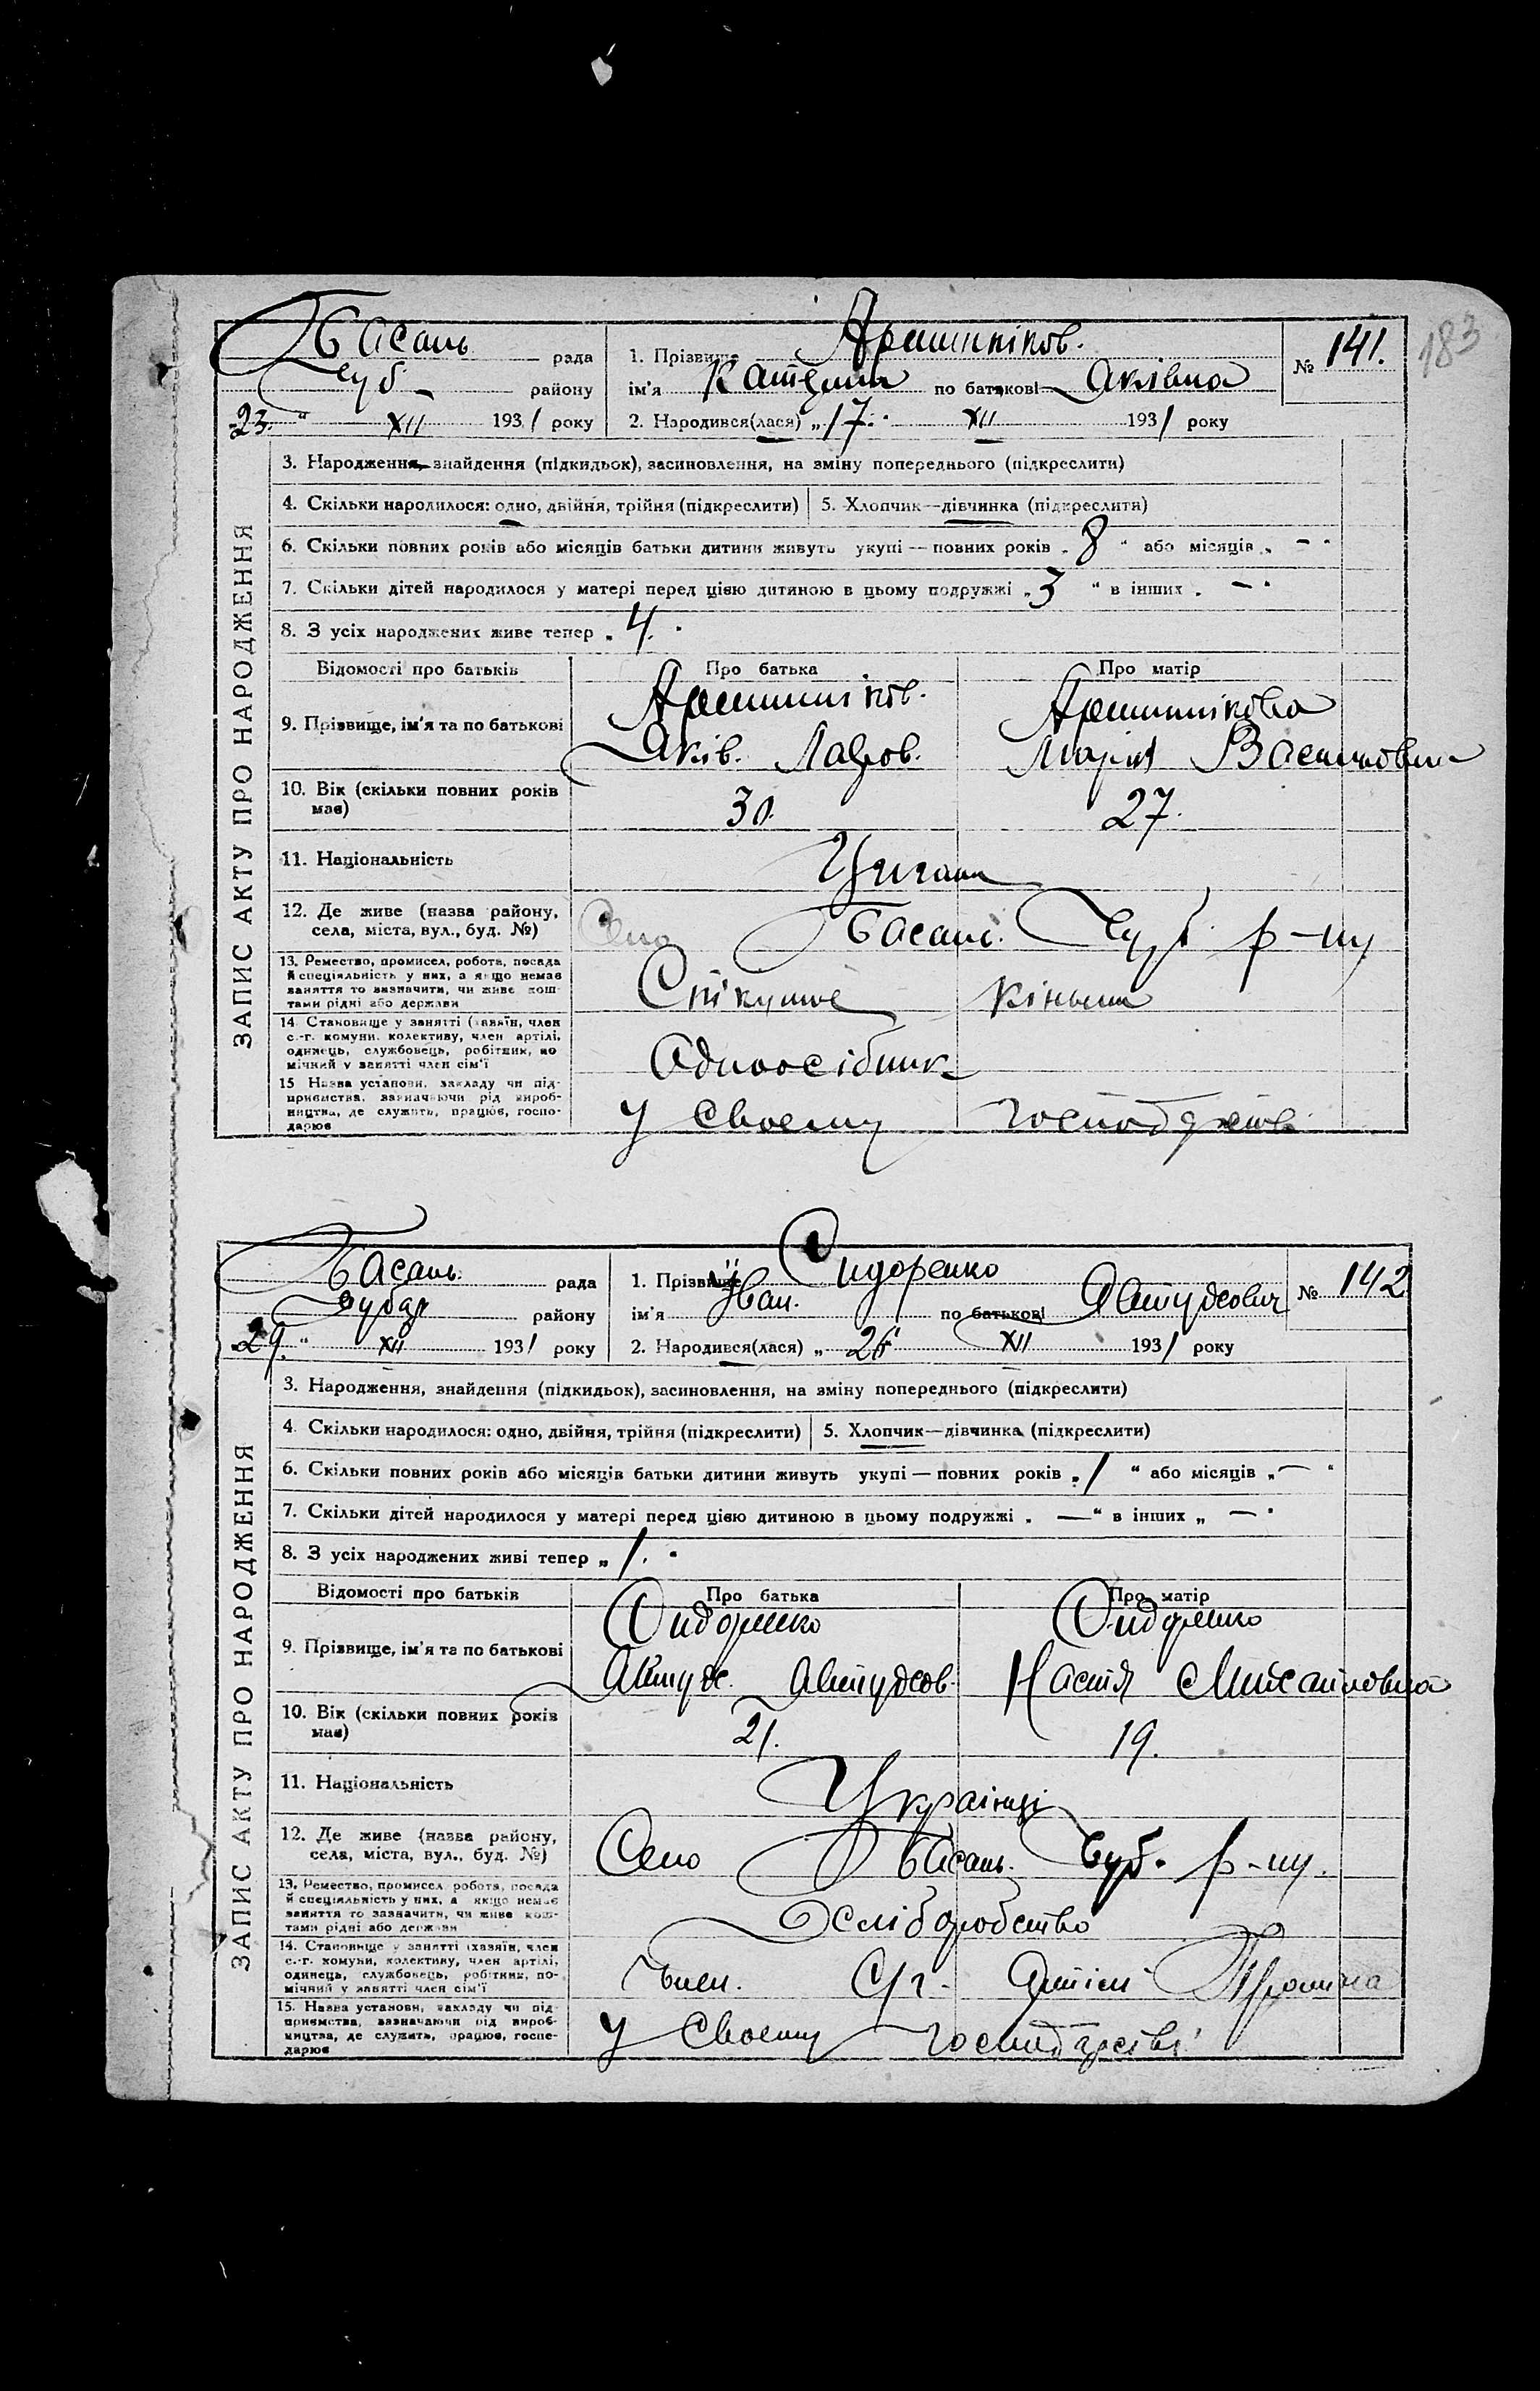 183
ЗАПИС АКТУ ПРО НАРОДЖЕННЯ
Басань рада
Чуб району
23. " XII 1931 року
1. Прізвище
ім'я Катерина по батькові Яківна
2. Народився(лася) „17" XII 1931 року
№ 141.
3. Народження, знайдення (підкидьок), засиновлення, на зміну попереднього (підкреслити)
4. Скільки народилося: одно, двійня, трійня (підкреслити) 5. Хлопчик—дівчинка (підкреслити)
6. Скільки повних років або місяців батьки дитини живуть укупі — повних років „ 8 " або місяців „ — "
7. Скільки дітей народилося у матері перед цією дитиною в цьому подружжі „ 3 " в інших „ — "
8. З усіх народжених живе тепер „ 4. "
Відомості про батьків Про батька Про матір
9. Прізвище, ім'я та по батькові
Яків. Лавров. Марія Васильовна
10. Вік (скільки повних років має) 30. 27.
11. Національність Цигани
12. Де живе (назва району, села, міста, вул., буд. №) Село Басань. Чуб. р-ну
13. Ремество, промисел, робота, посада й спеціяльність у них, а якщо немає заняття то зазначити, чи живе коштами рідні або держави
14. Становище у занятті (хазяїн, член с.-г. комуни, колективу, член артілі, одинець, службовець, робітник, помічний у занятті член сім'ї Одноосібник
15 Назва установи, закладу чи підприємства, зазначаючи рід виробництва, де служить, працює, господарює У своему господарстві
ЗАПИС АКТУ ПРО НАРОДЖЕННЯ
Басань рада
Чубар району
29. " XII 1931 року
1. Прізвище Сидоренко
ім'я Іван. по батькові
2. Народився(лася) „ XII 1931 року
№ 142
3. Народження, знайдення (підкидьок), засиновлення, на зміну попереднього (підкреслити)
4. Скільки народилося: одно, двійня, трійня (підкреслити) 5. Хлопчик—дівчинка (підкреслити)
6. Скільки повних років або місяців батьки дитини живуть укупі — повних років „ 1 " або місяців „ — "
7. Скільки дітей народилося у матері перед цією дитиною в цьому подружжі „ — " в інших „ — "
8. З усіх народжених живі тепер „ 1. "
Відомості про батьків Про батька Про матір
9. Прізвище, ім'я та по батькові Сидоренко Сидоренко
Настя Михайловна
10. Вік (скільки повних років має) 21. 19.
11. Національність Українці
12. Де живе (назва району, села, міста, вул., буд. №) Село Басань. Чуб. р-ну.
13. Ремество, промисел, робота, посада й спеціяльність у них, а якщо немає заняття то зазначити, чи живе коштами рідні або держави Хліборобство
14. Становище у занятті (хазяїн, член с.-г. комуни, колективу, член артілі, одинець, службовець, робітник, помічний у занятті член сім'ї Член. С/г. Артіли
15. Назва установи, закладу чи підприємства, зазначаючи рід виробництва, де служить, працює, господарює У своему господарстві